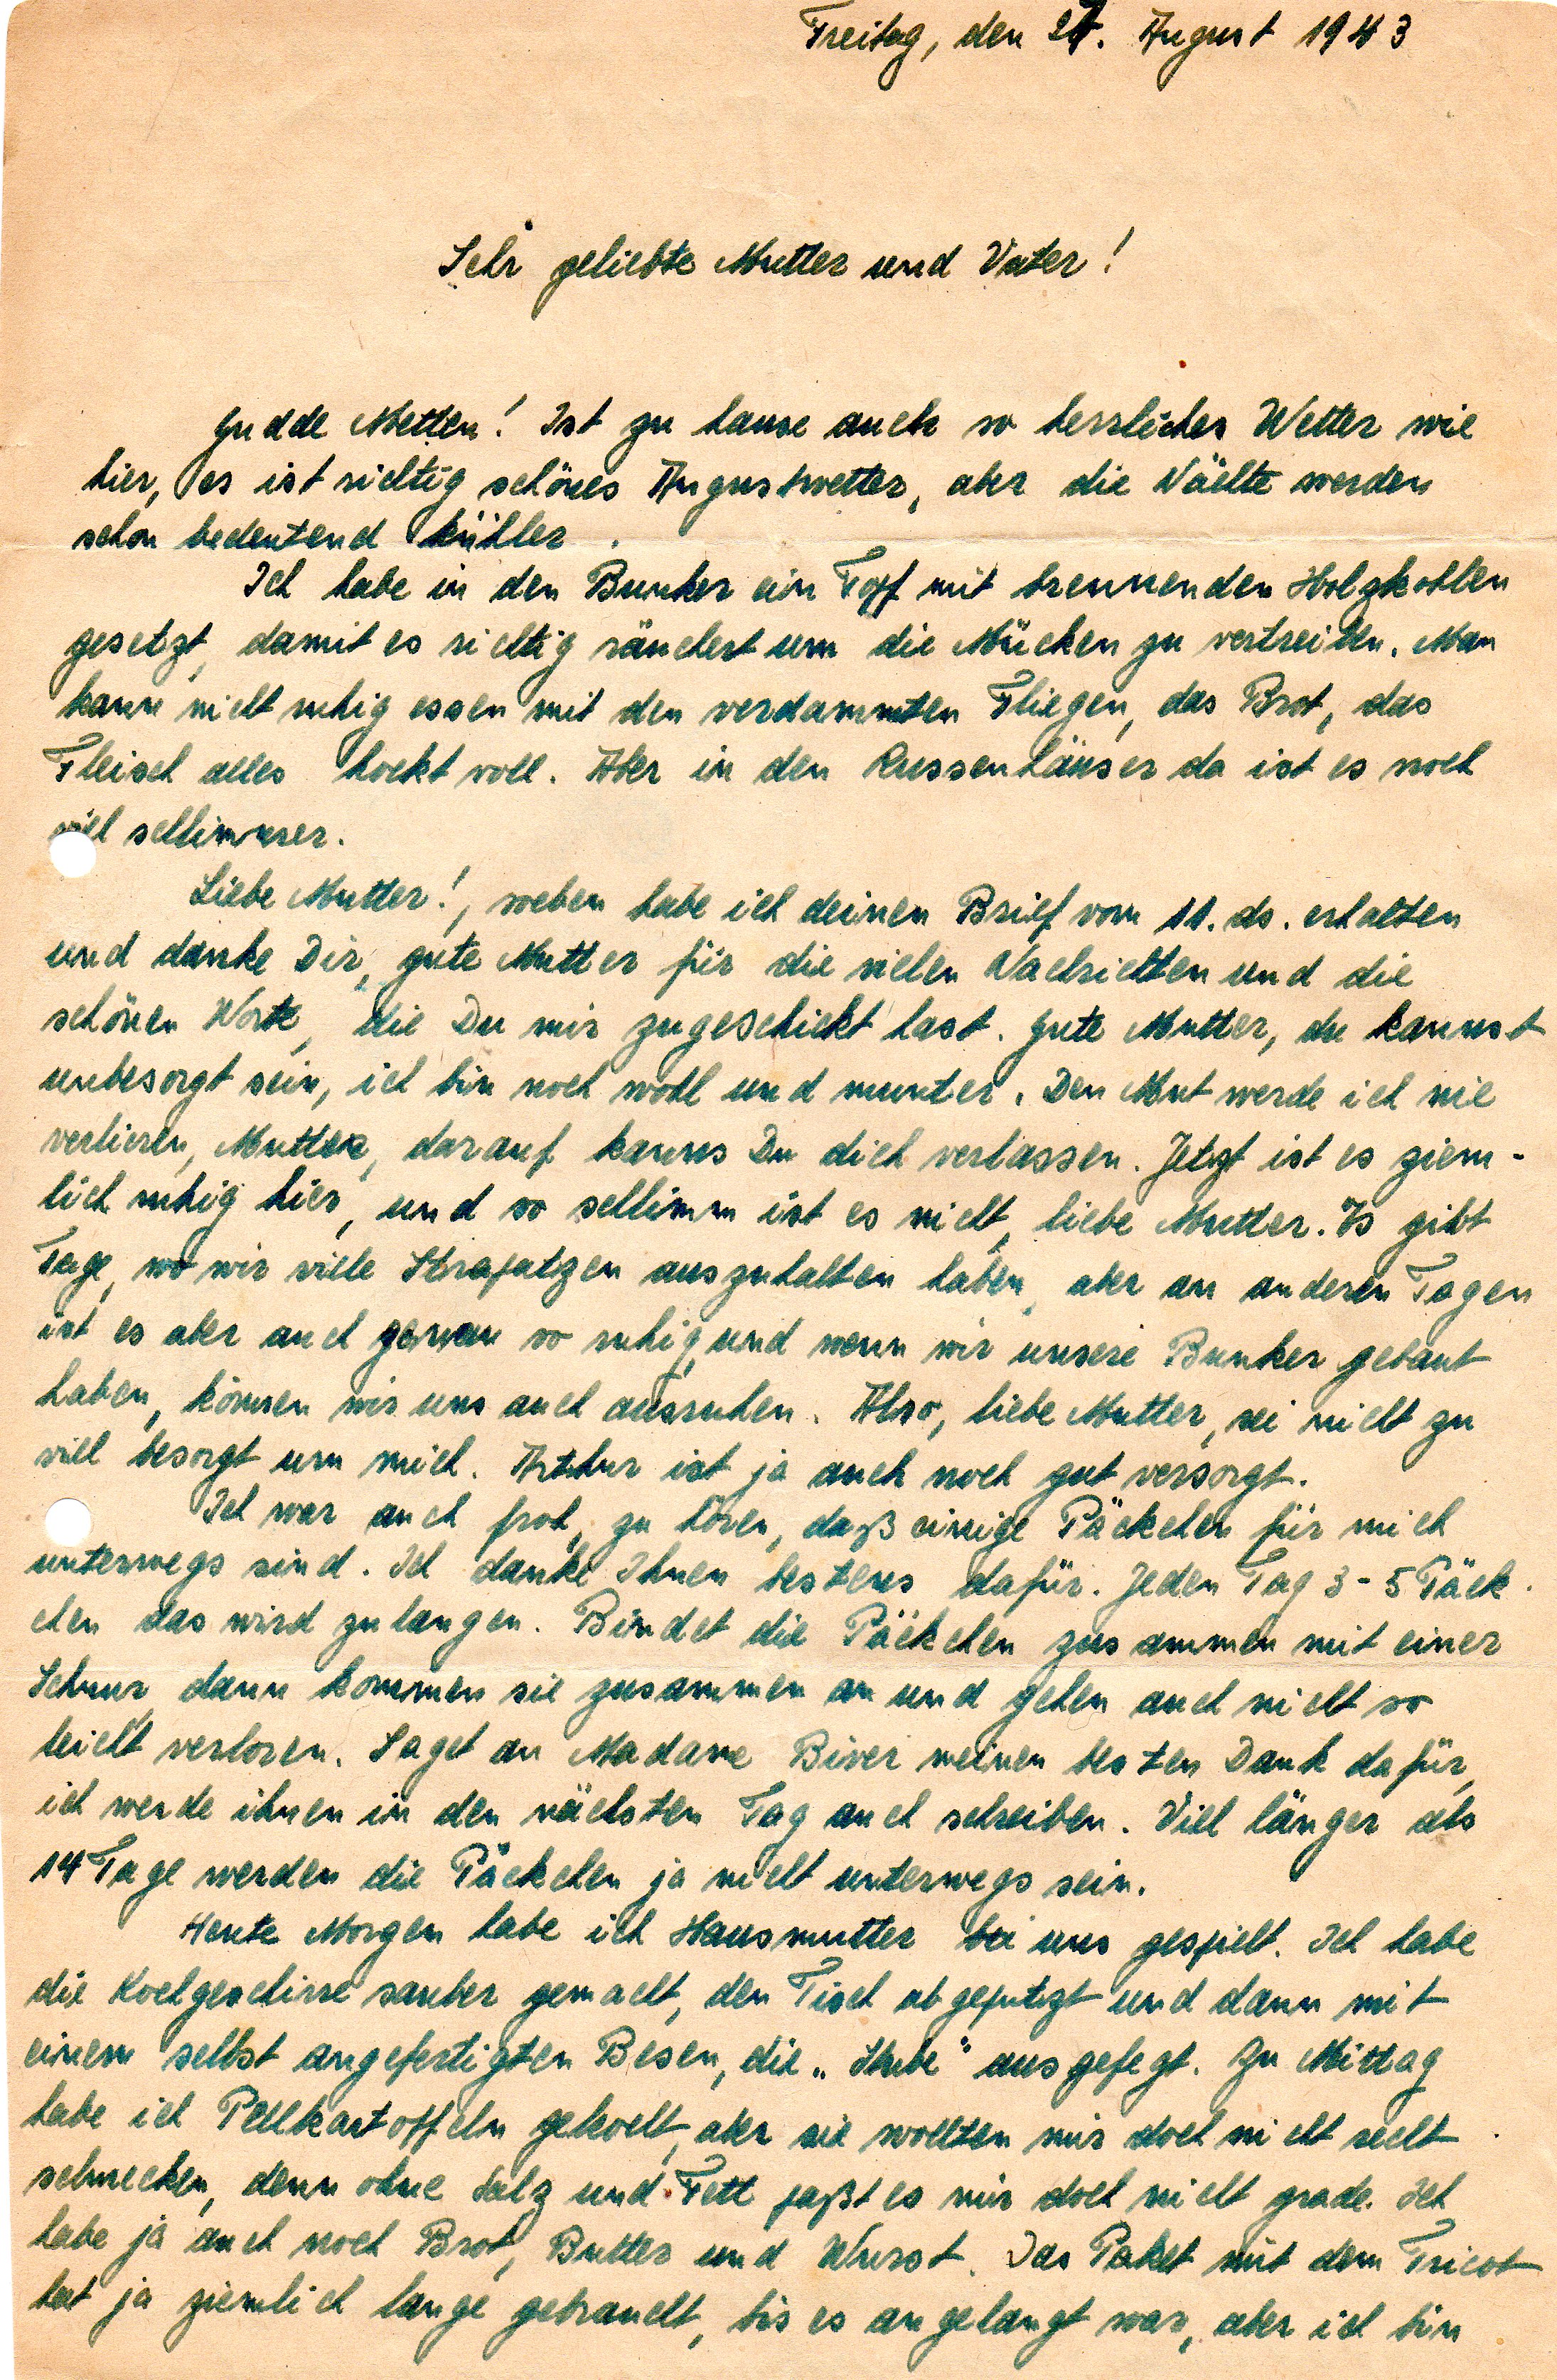 Freitag, den 27. August 1943
Sehr geliebte Mutter und Vater!
Gudde Metten! Ist zu hause auch so herrliches Wetter wie
hier, es ist richtig schönes Augustwetter, aber die Nächte werden
schon bedeutend kühler.
Ich habe in den Bunker ein Topf mit brennenden Holzkohlen
gesetzt, damit es richtig räuchert um die Mücken zu vertreiben. Man
kann nicht ruhig essen mit den verdammten Fliegen, das Brot, das
Fleisch alles hockt voll. Aber in den Russenhäuser da ist es noch
viel schlimmer.
Liebe Mutter!, soeben habe ich deinen Brief vom 11. ds. erhalten
und danke Dir, gute Mutter für die vielen Nachrichten und die
schönen Worte, die Du mir zugeschickt hast. Gute Mutter, du kannst
unbesorgt sein, ich bin noch wohl und munter. Den Mut werde ich nie
verlieren, Mutter, darauf kanns Du dich verlassen. Jetzt ist es ziem-
lich ruhig hier, und so schlimm ist es nicht, liebe Mutter. Es gibt
Tage, wo wir viele Strapatzen auszuhalten haben, aber an anderen Tagen
ist es aber auch genau so ruhig, und wenn wir unsere Bunker gebaut
haben, können wir uns auch ausruhen. Also, liebe Mutter, sei nicht zu
viel besorgt um mich. Arthur ist ja auch noch gut versorgt.
Ich war auch froh, zu hören, daß einige Päckchen für mich
unterwegs sind. Ich danke Ihnen bestens dafür. Jeden Tag 3-5 Päck-
chen das wird zulangen. Bindet die Päckchen zusammen mit einer
Schnur dann kommen sie zusammen an und gehen auch nicht so
leicht verloren. Saget an Madame Biver meinen besten Dank dafür,
ich werde ihnen in den nächsten Tag auch schreiben. Viel länger als
14 Tage werden die Päckchen ja nicht unterwegs sein.
Heute Morgen habe ich Hausmutter bei uns gespielt. Ich habe
die Kochgeschirre sauber gemacht, den Tisch abgeputzt und dann mit
einem selbst angefertigten Besen, die „Stube" ausgefegt. Zu Mittag
habe ich Pellkartoffeln gekocht, aber sie wollten mir doch nicht recht
schmecken, denn ohne Salz und Fett paßt es mir doch nicht grade. Ich
habe ja auch noch Brot, Butter und Wurst. Das Paket mit dem Tricot
hat ja ziemlich lange gebraucht, bis es angelangt war, aber ich bin